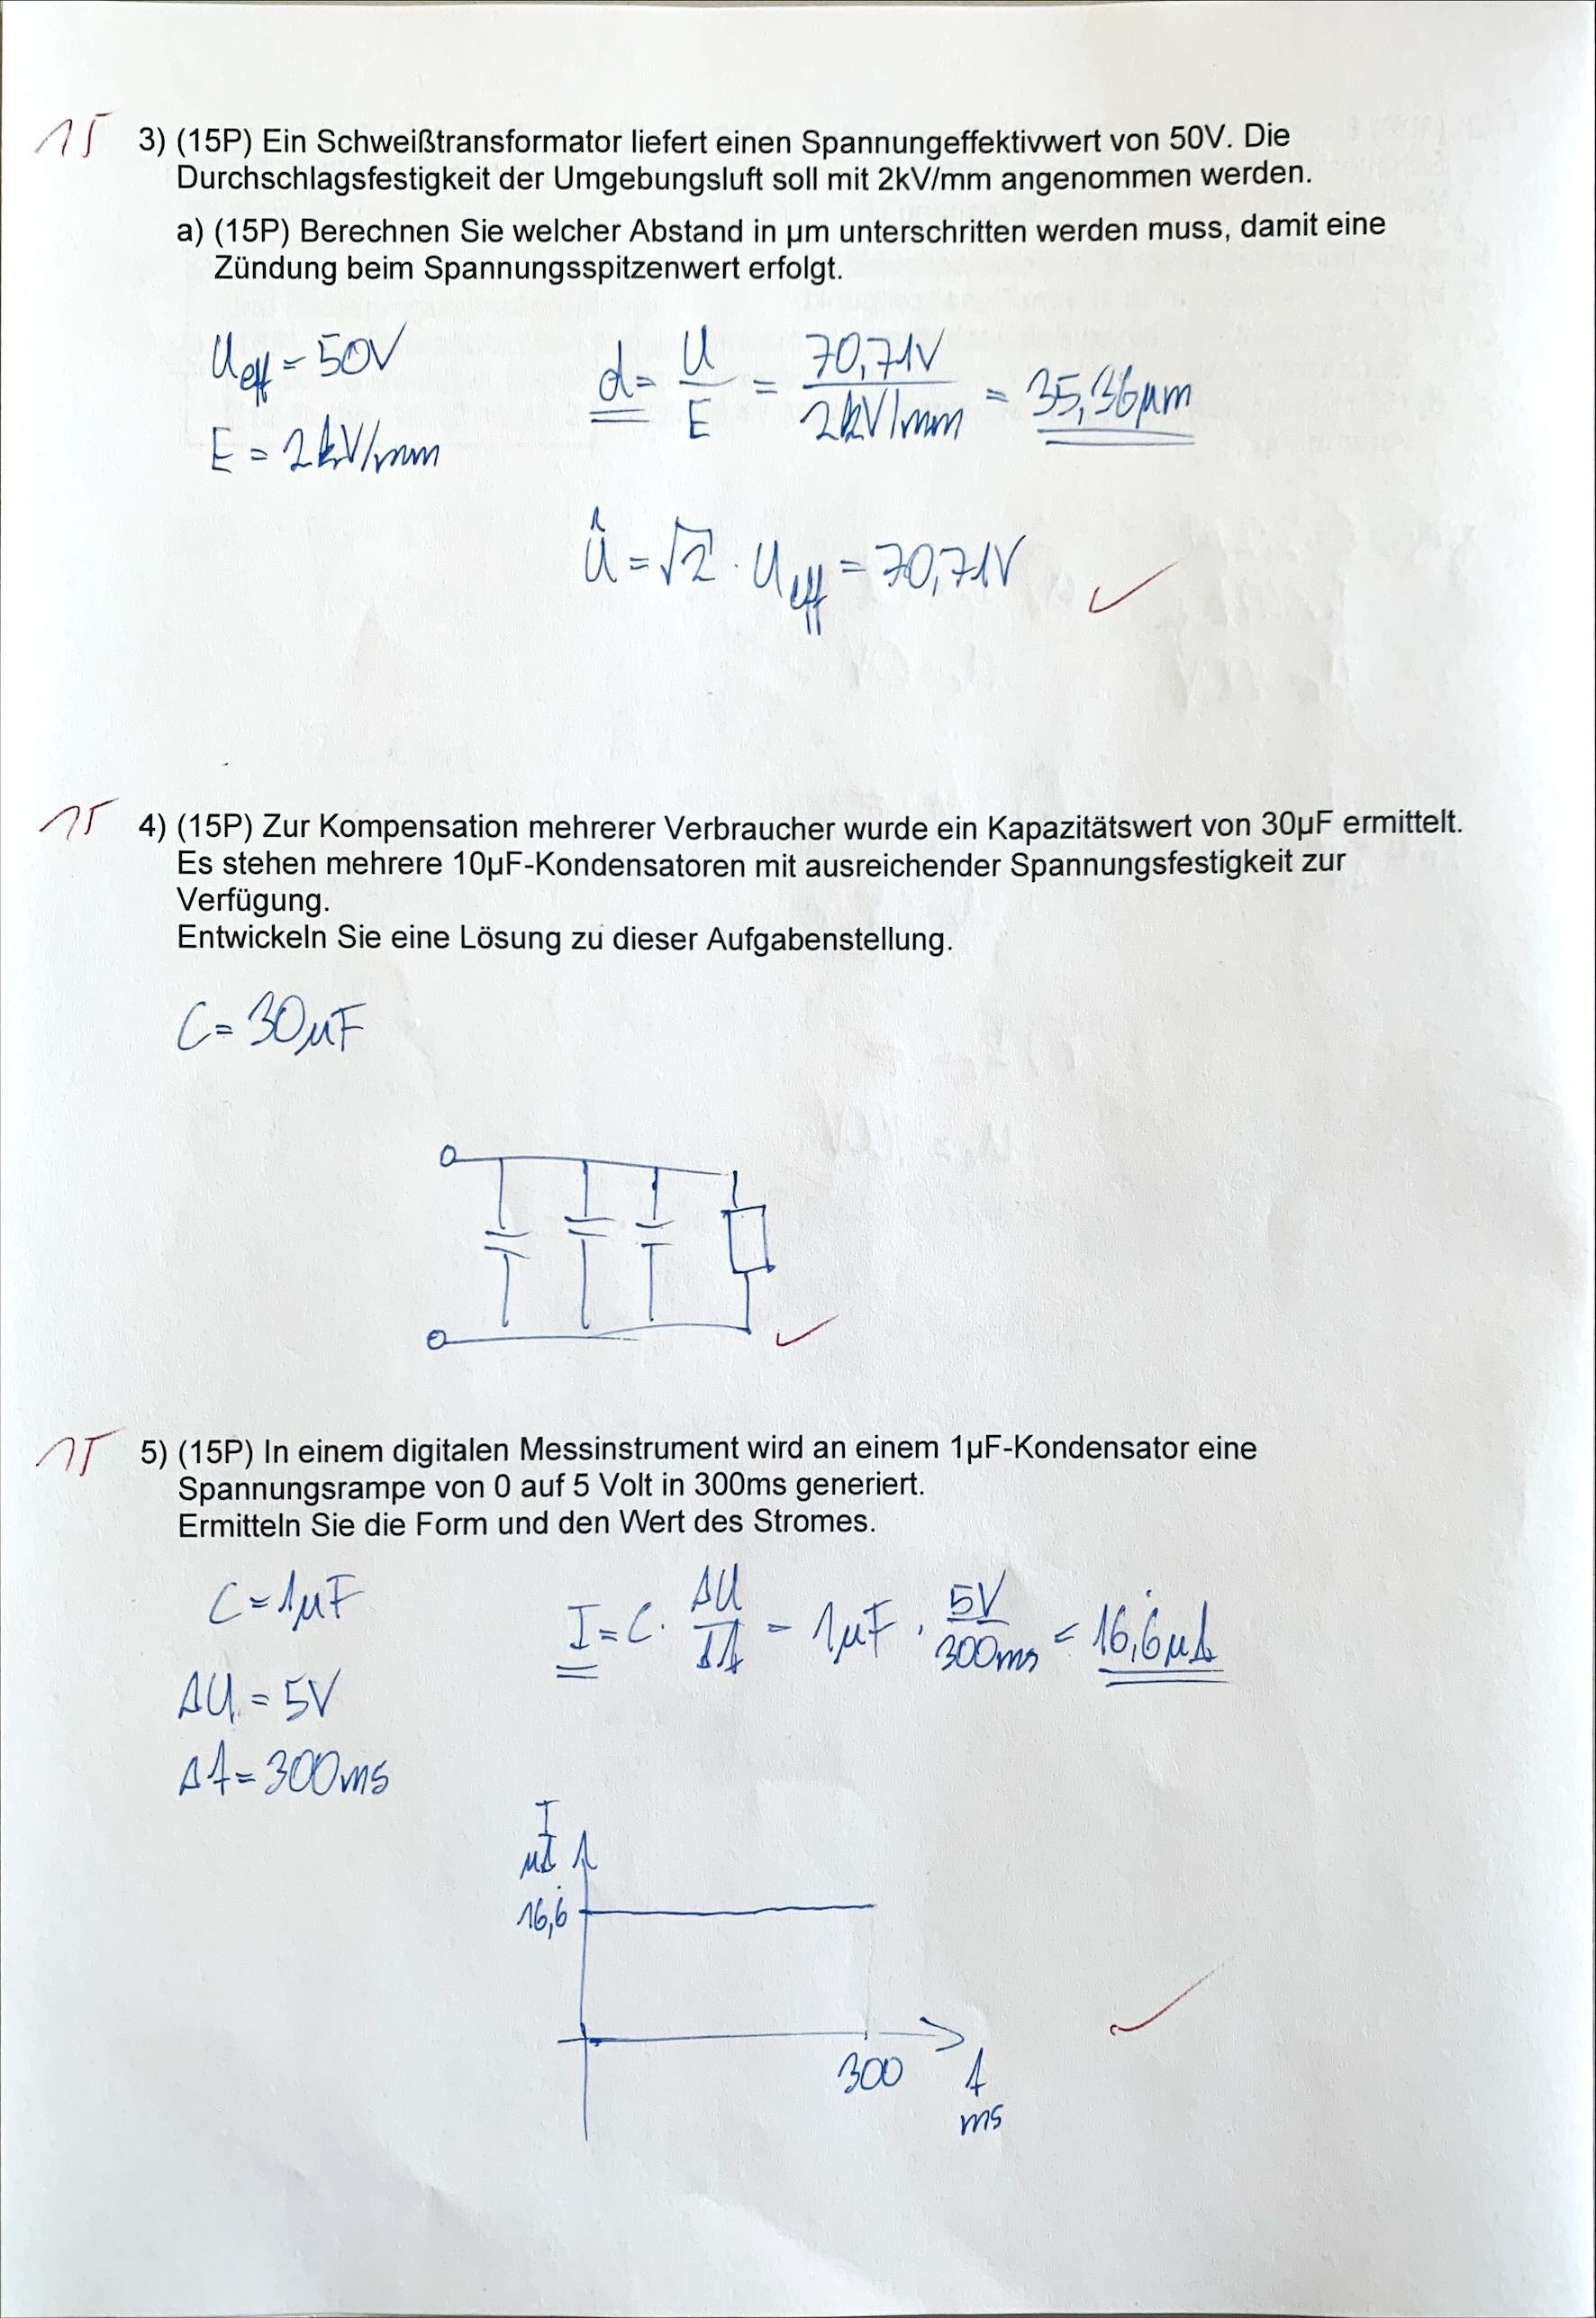 15 3) (15P) Ein Schweißtransformator liefert einen Spannungeffektivwert von 50V. Die
Durchschlagsfestigkeit der Umgebungsluft soll mit 2kV/mm angenommen werden.
a) (15P) Berechnen Sie welcher Abstand in µm unterschritten werden muss, damit eine
Zündung beim Spannungsspitzenwert erfolgt.
U_eff = 50V
d = U/E = 70,71V / 2kV/mm = 35,36µm
E = 2kV/mm
û = √2 · U_eff = 70,71V ✓
15 4) (15P) Zur Kompensation mehrerer Verbraucher wurde ein Kapazitätswert von 30µF ermittelt.
Es stehen mehrere 10µF-Kondensatoren mit ausreichender Spannungsfestigkeit zur
Verfügung.
Entwickeln Sie eine Lösung zu dieser Aufgabenstellung.
C = 30µF
✓
15 5) (15P) In einem digitalen Messinstrument wird an einem 1µF-Kondensator eine
Spannungsrampe von 0 auf 5 Volt in 300ms generiert.
Ermitteln Sie die Form und den Wert des Stromes.
C = 1µF
I = C · ΔU/Δt = 1µF · 5V/300ms = 16,6̇µA
ΔU = 5V
Δt = 300ms
I
µA
16,6̇
✓
300 t
ms